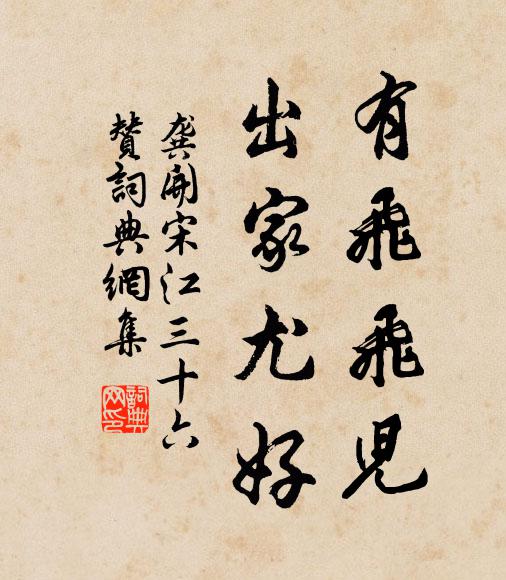 有飛飛児
出家尤好
龔開宋江三十六
賛詞典網集
詞典网印